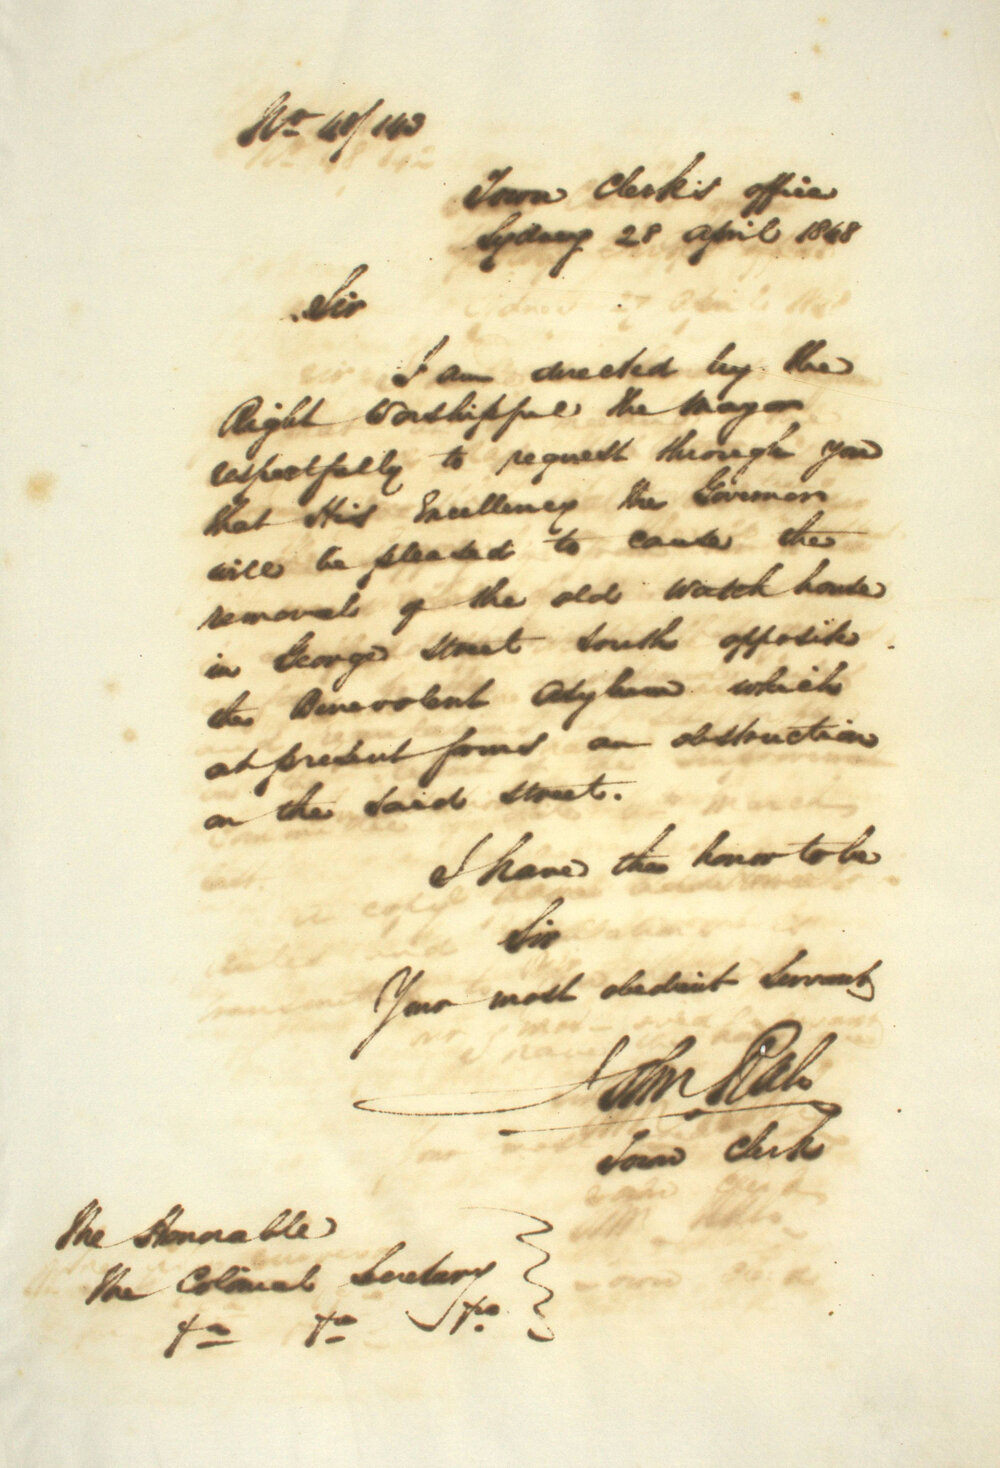 No 48/143
Town Clerk's office
Sydney 28 April 1848
Sir
I am directed by the
Right Worshipful the Mayor
respectfully to request through you
that His Excellency the Governor
will be pleased to cause the
removal of the old watch house
in George Street South opposite
the Benevolent Asylum which
at present forms an obstruction
on the said street.
I have the honor to be
Sir
Your most obedient Servant
John
Town Clerk
The Honorable
The Colonial Secretary